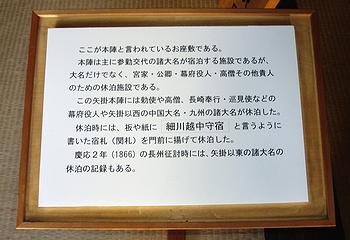 ここが本陣と言われているお座敷である。
本陣は主に参勤交代の諸大名が宿泊する施設であるが、
大名だけでなく、宮家・公卿・幕府役人・高僧その他貴人
のための休泊施設である。
この矢掛本陣には勅使や高僧、長崎奉行・巡見使などの
幕府役人や矢掛以西の中国大名・九州の諸大名が休泊した。
休泊時には、板や紙に 細川越中守宿 と言うように
書いた宿札（関札）を門前に揚げて休泊した。
慶応２年（1866）の長州征討時には、矢掛以東の諸大名の
休泊の記録もある。